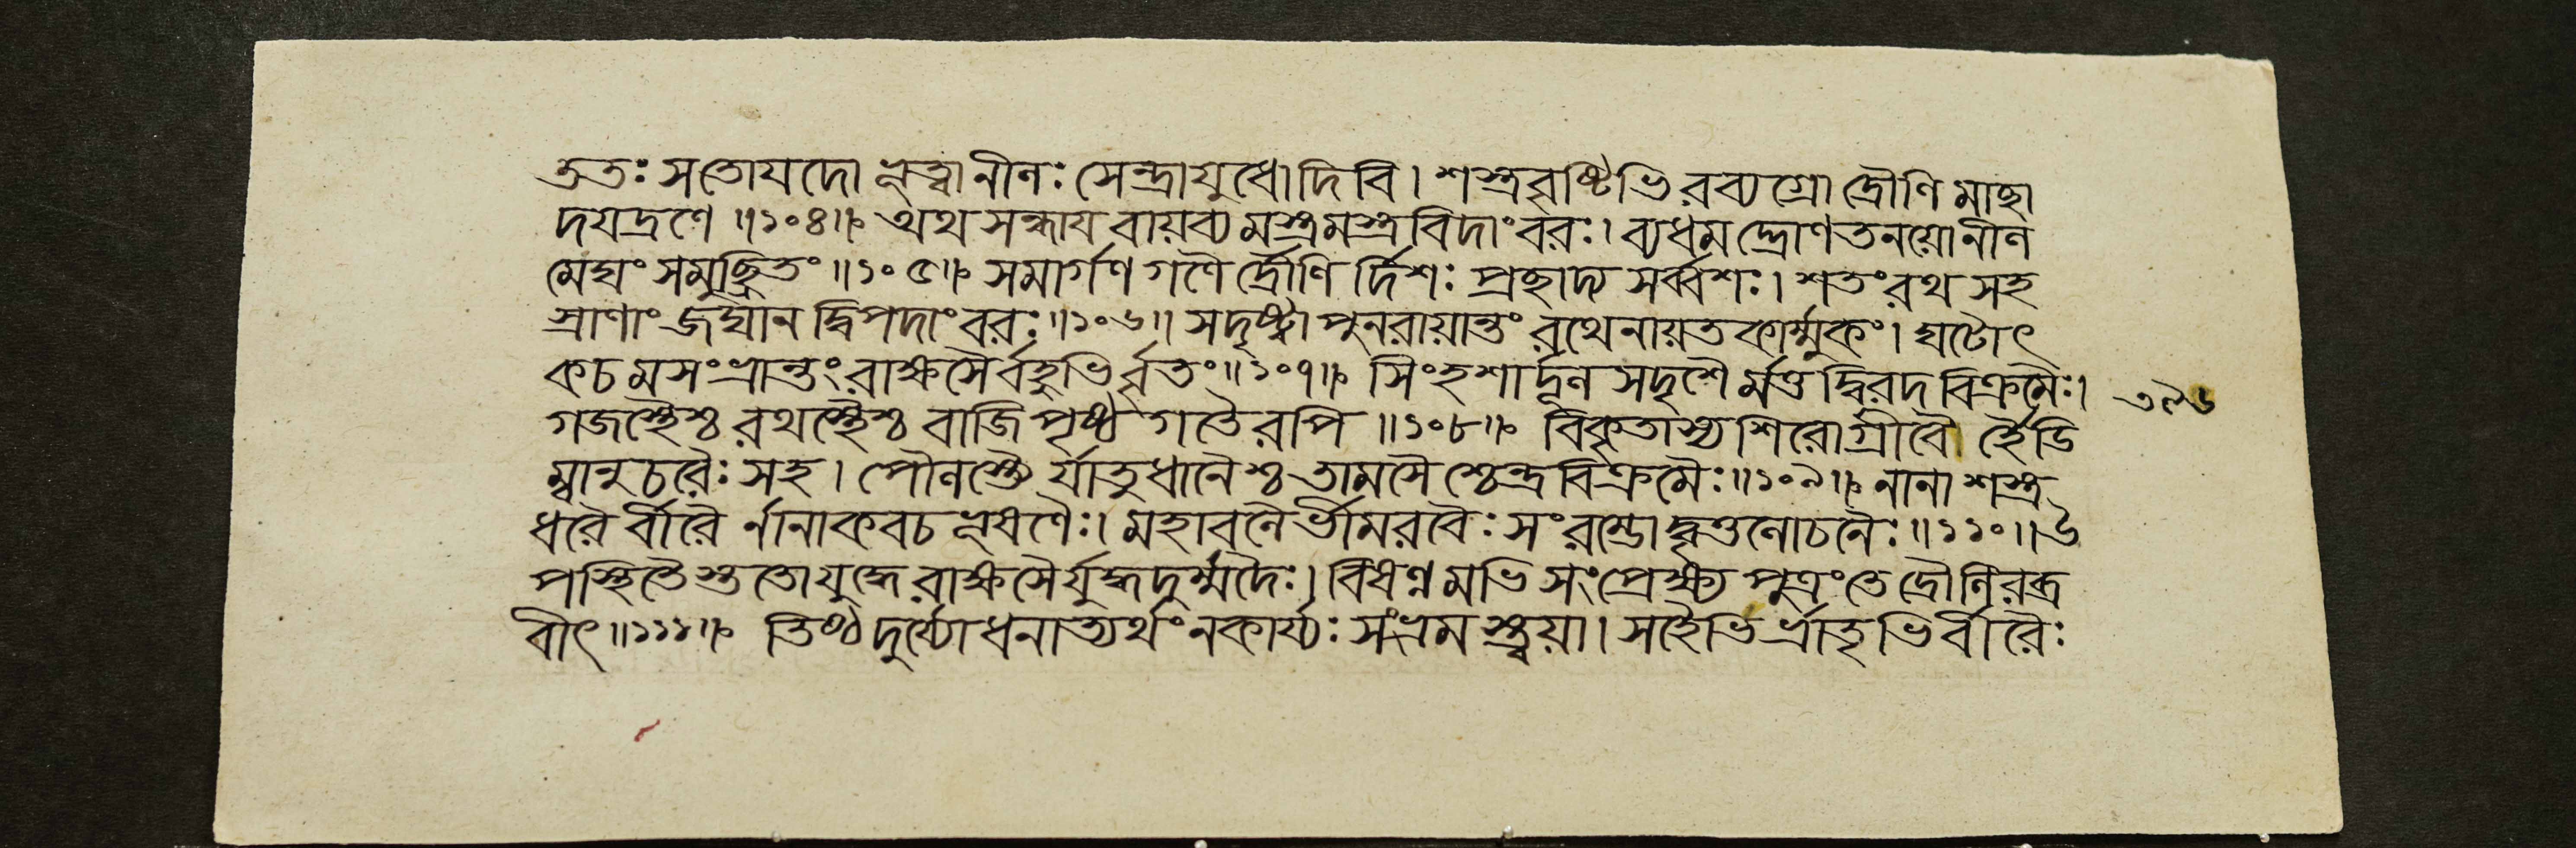 ততঃ সতোযদো ভূত্বা নীলঃ সেন্দ্রাযুধো দিবি। শস্ত্রবৃষ্টিভিরব্যগ্রো দ্রৌণিমাছা
দযদ্রণে॥১০৪॥ অথ সন্ধায বায়ব্যমস্ত্রমস্ত্রবিদাংবরঃ। ব্যধমদ্দ্রোণতনয়ো নীল
মেঘং সমুচ্ছ্রিতং॥১০৫॥ সমার্গণগণৈর্দ্রৌণির্দিশঃ প্রছাদ্য সর্ব্বশঃ। শতং রথসহ
স্রাণাং জঘান দ্বিপদাংবরঃ॥১০৬॥ সদৃষ্ট্বা পুনরায়ান্তং রথেনায়তকার্ম্মুকং। ঘটোৎ
কচমসংভ্রান্তং রাক্ষসৈর্বহুভির্বৃতং॥১০৭॥ সিংহশার্দূলসদৃশৈর্মত্তদ্বিরদবিক্রমৈঃ।
গজস্থৈশ্চ রথস্থৈশ্চ বাজিপৃষ্ঠগতৈরপি॥১০৮॥ বিকৃতাস্যশিরোগ্রীবৈর্হৈডি
ম্বানুচরৈঃ সহ। পৌলস্ত্যৈর্যাতুধানৈশ্চ তামসৈশ্চেন্দ্রবিক্রমৈঃ॥১০৯॥ নানাশস্ত্র
ধরৈর্বীরৈর্নানাকবচভূষণৈঃ। মহাবলৈর্ভীমরবৈঃ সংরম্ভোদ্বৃত্তলোচনৈঃ॥১১০॥ উ
পস্থিতৈস্ততো যুদ্ধে রাক্ষসৈর্যুদ্ধদুর্ম্মদৈঃ। বিষণ্নমভিসংপ্রেক্ষ্য পুত্রং তে দ্রৌণিরব্র
বীৎ॥১১১॥ তিষ্ঠ দুর্য্যোধনাত্যর্থং নকার্য্যঃ সংভ্রমস্ত্বয়া। সহৈভির্ভ্রাতৃভির্বীরৈঃ
৩৯৬